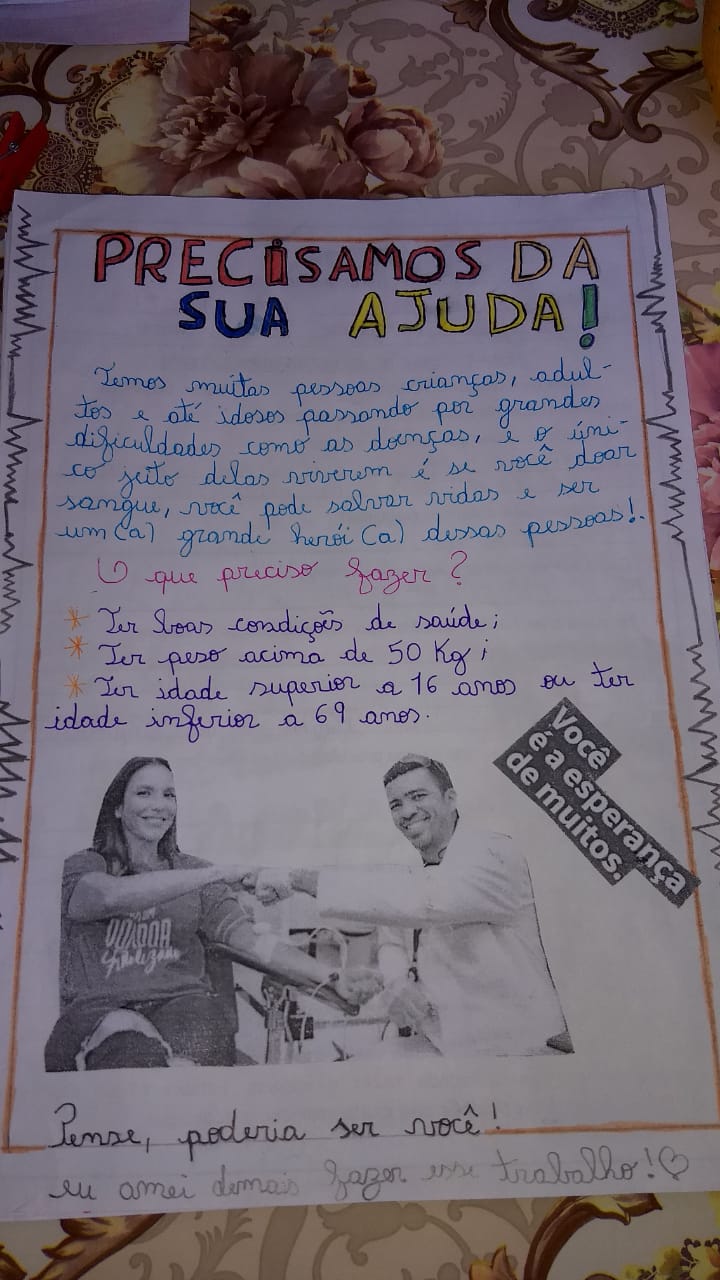 PRECISAMOS DA
SUA AJUDA!
Temos muitas pessoas crianças, adul-
tos e até idosos passando por grandes
dificuldades como as doenças, e o úni-
co jeito delas viverem é se você doar
sangue, você pode salvar vidas e ser
um(a) grande herói (a) dessas pessoas!.
O que preciso fazer?
* Ter boas condições de saúde;
* Ter peso acima de 50 Kg;
* Ter idade superior a 16 anos ou ter
idade inferior a 69 anos.
Você
é a esperança
de muitos.
DOADORA
Pense, poderia ser você!
eu amei demais fazer esse trabalho!♡